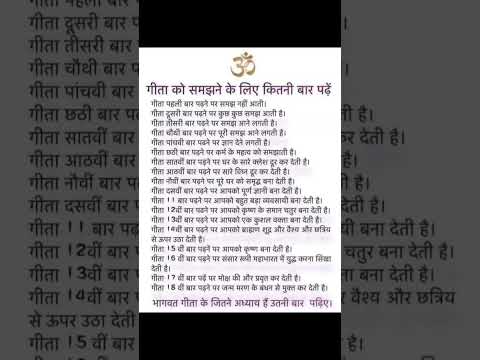 ॐ
गीता को समझने के लिए कितनी बार पढ़ें
गीता पहली बार पढ़ने पर समझ नहीं आती।
गीता दूसरी बार पढ़ने पर कुछ कुछ समझ आती है।
गीता तीसरी बार पढ़ने पर समझ आने लगती है।
गीता चौथी बार पढ़ने पर पूरी समझ आने लगती है।
गीता पांचवी बार पढने पर ज्ञान देने लगती है।
गीता छठी बार पढ़ने पर कर्म के महत्व को समझाती है।
गीता सातवीं बार पढ़ने पर घर के सारे क्लेश दूर कर देती है।
गीता आठवीं बार पढ़ने पर सारे विघ्न दूर कर देती है।
गीता नौवीं बार पढ़ने पर पूरे घर को समृद्ध बना देती है।
गीता दसवीं बार पढ़ने पर आपको पूर्ण ज्ञानी बना देती है।
गीता 11 बार पढ़ने पर आपको बहुत बड़ा व्यवसायी बना देती है।
गीता 12वीं बार पढ़ने पर आपको कृष्ण के समान चतुर बना देती है।
गीता 13वीं बार पढ़ने पर आपको एक कुशल वक्ता बना देती है।
गीता 14वीं बार पढ़ने पर आपको ब्राह्मण शूद्र और वैश्य और छत्रिय
से ऊपर उठा देती है।
गीता 15 वीं बार पढ़नें पर आपको कृष्ण बना देती है।
गीता 16 वीं बार पढ़ने पर संसार रूपी महाभारत में युद्ध करना सिखा
देती है।
गीता 17 वीं बार पढ़ें पर मोक्ष की और प्रवृत कर देती है।
गीता 18 वीं बार पढ़ने पर जन्म मरण के बंधन से मुक्त कर देती है।
भागवत गीता के जितने अध्याय हैं उतनी बार पढ़िए।